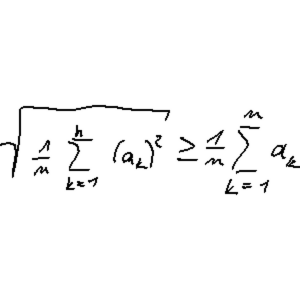 √(1/n ∑_{k=1}^{n} (a_k)²) ≥ 1/n ∑_{k=1}^{n} a_k